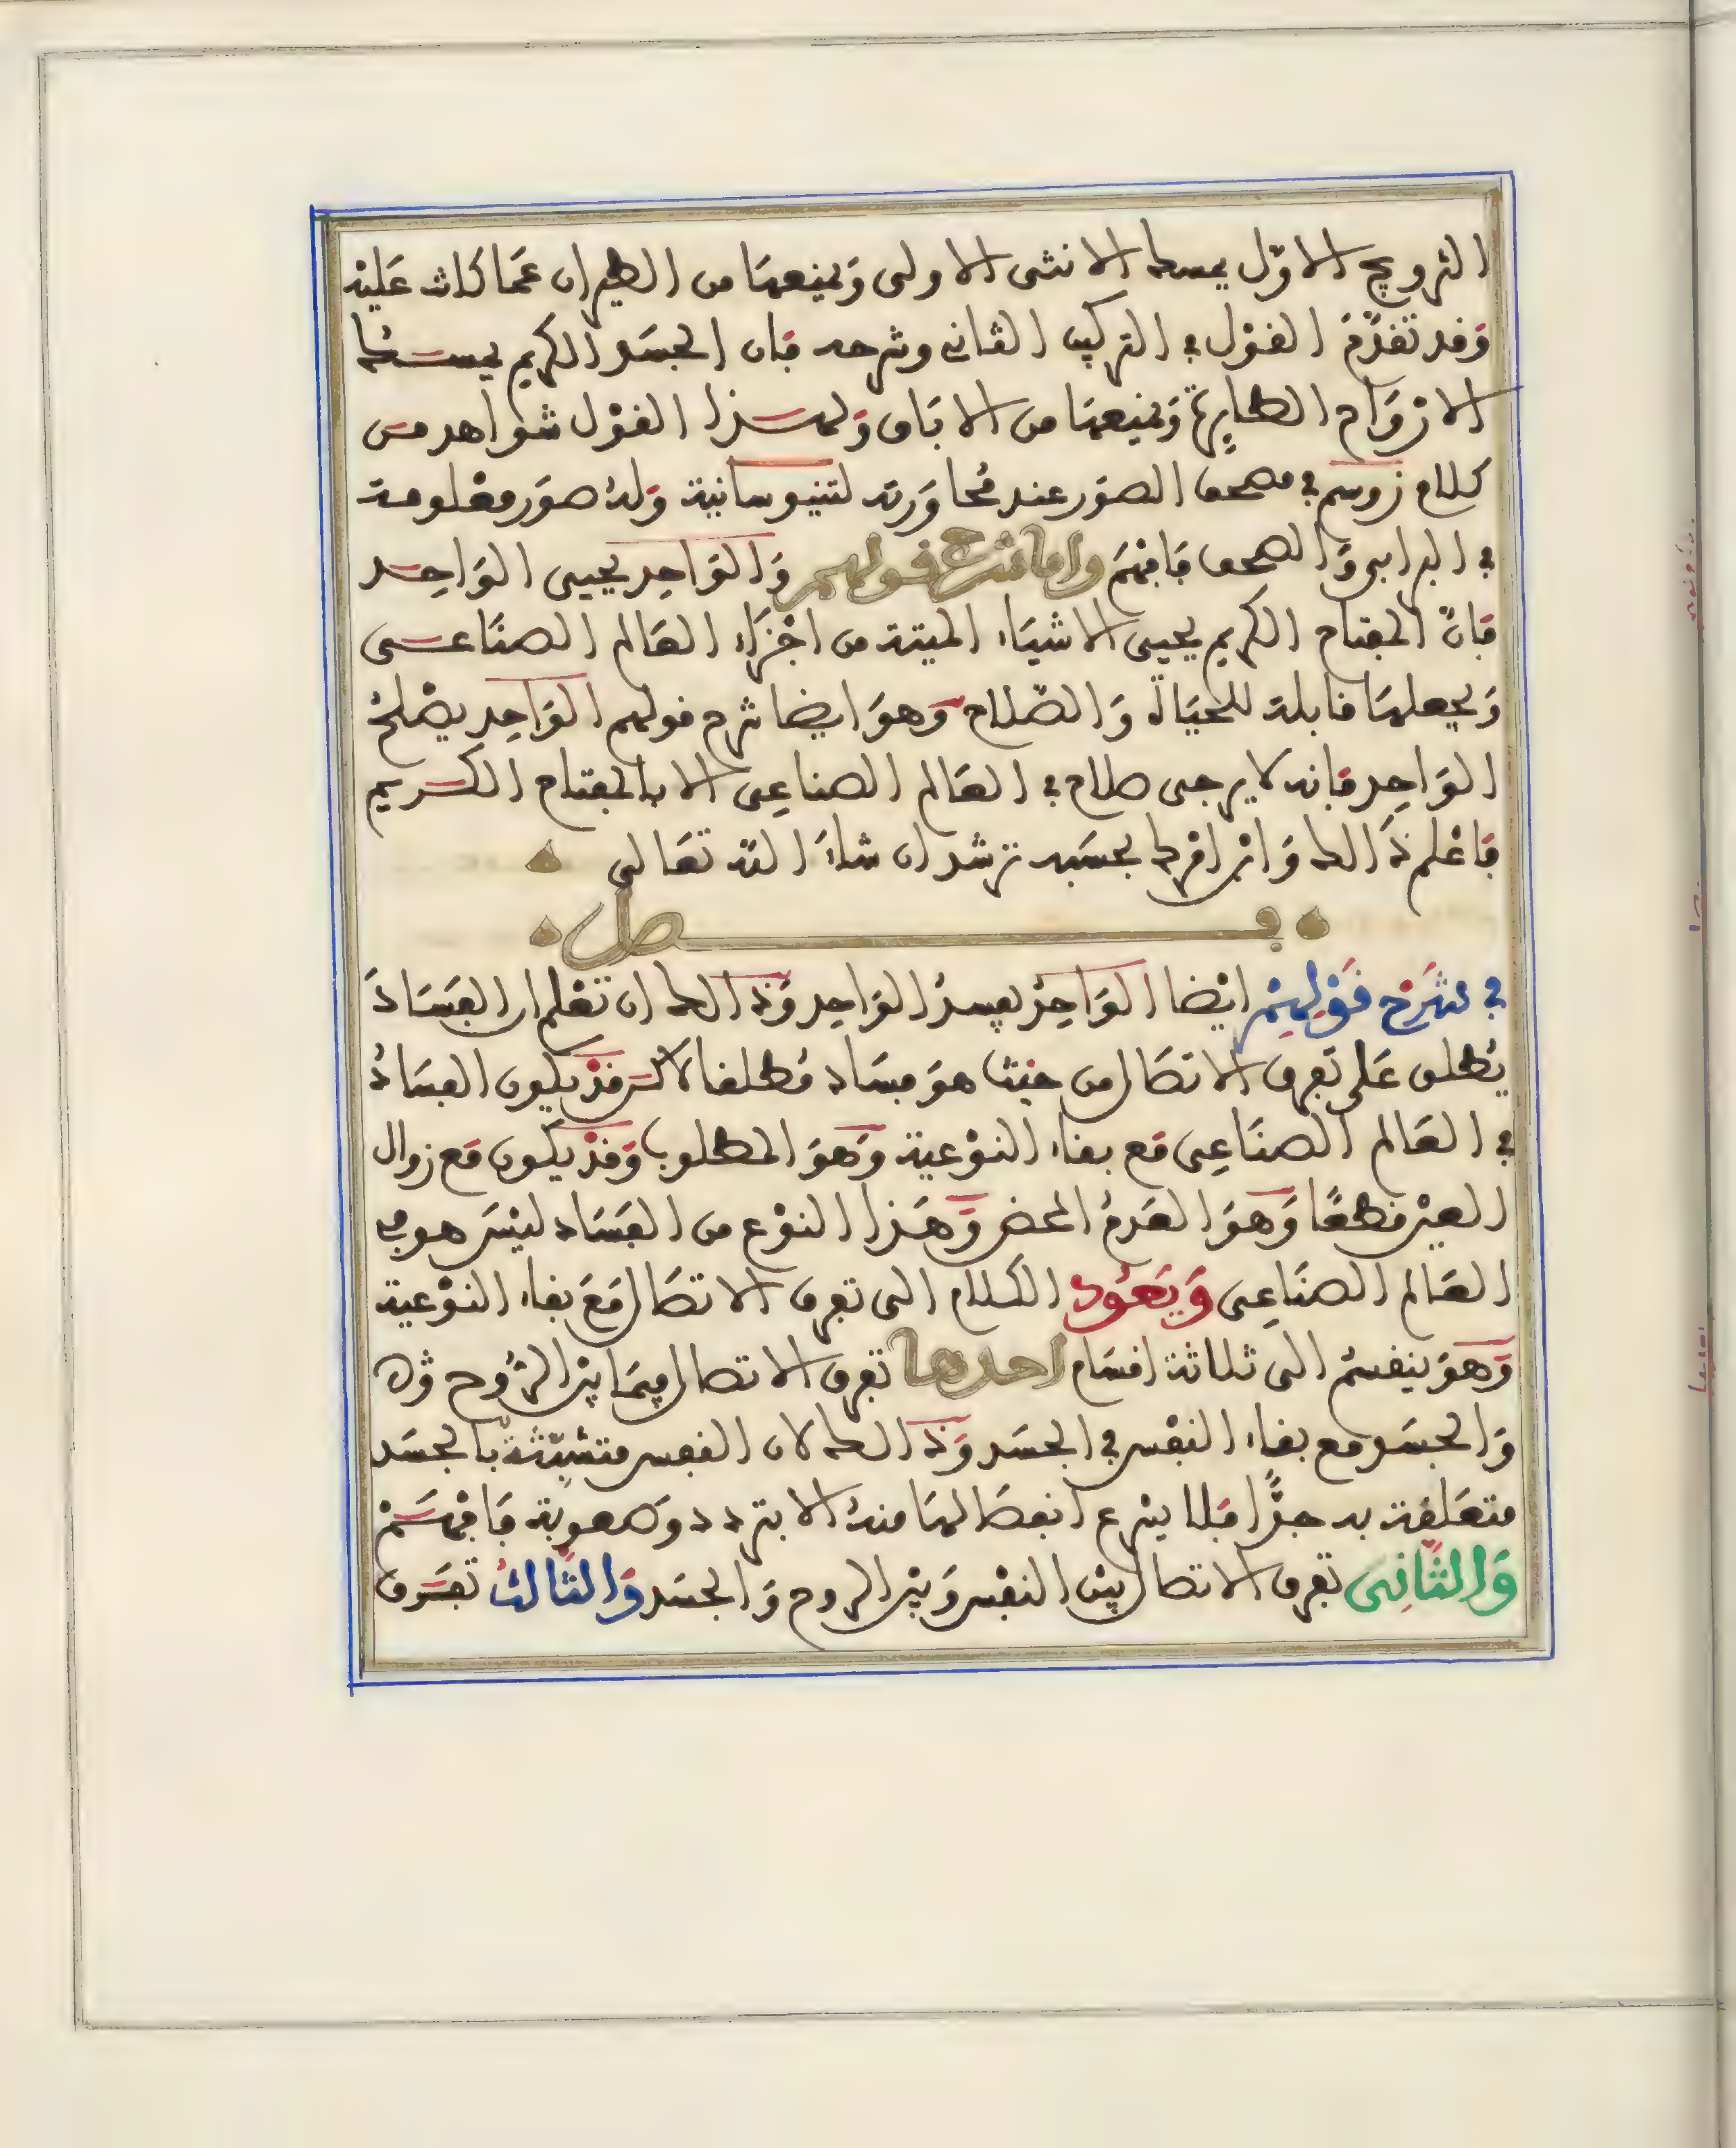 التزويج الاوّل يمسك الانثى الاولى وَيمنعهَا من الطيران عمَا كانت عَليْه
وَقد تقدّمَ القوْل في التركيب الثاني وشرحه فان الجسَد الكريم يمسك
الازوَاج الطايرة وَيمنعهَا من الابَاق وَلهذا القوْل شوَاهد من
كلام زوسم في مصحف الصوَر عند مُحاوَرته لتنيوسانية وَلهُ صوَر معْلومة
في البرابي وَالصحف فافهمَ واما شرح قولهم وَالوَاحِد يحيى الوَاحِد
فانّ المفتاح الكريم يحيى الاشيَاء الميتة من اجْزَاء العَالم الصنَاعى
وَيجعلهَا قابلة للحيَاة وَالصّلاح وَهوَ ايضا شرح قولهم الوَاحِد يصْلحُ
الوَاحِد فانه لا يرجى صلاح في العَالم الصناعِى الا بالمفتاح الكريم
فاعْلم ذَالك وَابن امْرك بحسَبه ترشد ان شاءَ اللّه تعَالى
فصل
في شَرْح قَوْلِهِمْ ايْضا الوَاحِدُ يفسدُ الوَاحِد وَذَالك ان تعْلم ان الفسَادَ
يُطلق عَلى تَفرق الاتصَال من حيْث هوَ فسَاد مُطلقا لاكن قدْ يكون الفسَادُ
في العَالم الصنَاعِى مَع بقاء النوْعية وَهوَ المطلوب وَقدْ يكون مَع زوال
العيْن قطعًا وَهوَ العَدمُ المحض وَهَذا النوْع من الفسَاد ليْسَ هو في
العَالم الصنَاعِى وَيَعُود الكلام الى تفرق الاتصَال مَعَ بقاء النوْعية
وَهوَ ينقسمُ الى ثلاثة اقسَام احدها تفرق الاتصال فيمَا بيْن الرُّوح
وَالجسَد مع بقاء النفْس في الجسَد وَذَالك لان النفس متشبّثة بالجسَد
متعَلقة به جدًّا فلا يسْرع انفصَالهَا منهُ الا بتردد وَصعوبة فافهَمْ
وَالثَّانِى تفرق الاتصال بيْن النفْس وَبيْن الروح وَالجسَد وَالثَّالثُ تفرق